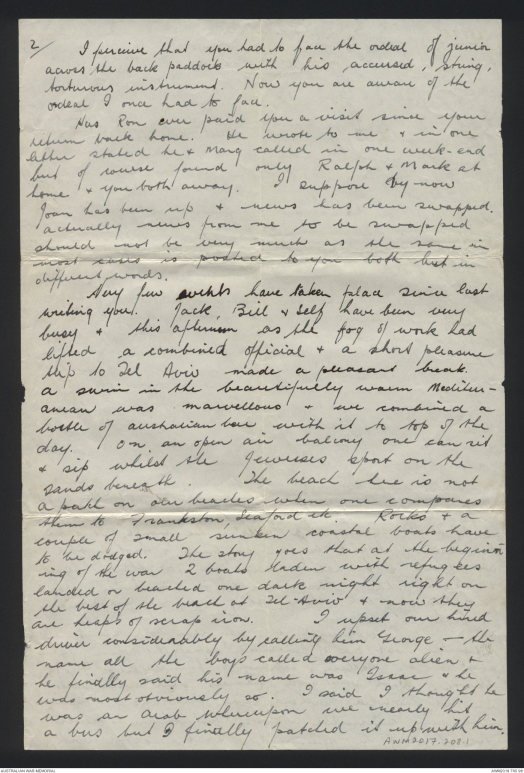 2/
I perceive that you had to face the ordeal of junior
across the back paddock with his accursed, string,
torturous instrument. Now you are aware of the
ordeal I once had to face.
Has Ron ever paid you a visit since your
return back home. He wrote to me & in one
letter stated he & Marg called in one week-end
but of course found only Ralph & Mark at
home & you both away. I suppose by now
Joan has been up & news has been swapped.
actually news from me to be swapped
should not be very much as the same in
most cases is posted to you both but in
different words.
Very few events have taken place since last
writing you. Jack, Bill & self have been very
busy & this afternoon as the fog of work had
lifted a combined official & a short pleasure
trip to Tel Aviv made a pleasant break.
a swim in the beautifully warm Mediter-
anean was marvellous & we combined a
bottle of australian beer with it to top off the
day. On an open air balcony one can sit
& sip whilst the Jewesses sport on the
sands beneath. The beach here is not
a patch on our beaches when one compares
them to Frankston, Seaford etc. Rocks & a
couple of small sunken coastal boats have
to be dodged. The story goes that at the beginn-
ing of the war 2 boats laden with refugees
landed or beached one dark night right on
the best of the beach at Tel-Aviv & now they
are heaps of scrap iron. I upset our hired
driver considerably by calling him George - the
name all the boys called everyone alien &
he finally said his name was Isaac & he
was most obviously so. I said I thought he
was an Arab whereupon we nearly hit
a bus but I finally patched it up with him.
AWM2017.208.1
AUSTRALIAN WAR MEMORIAL